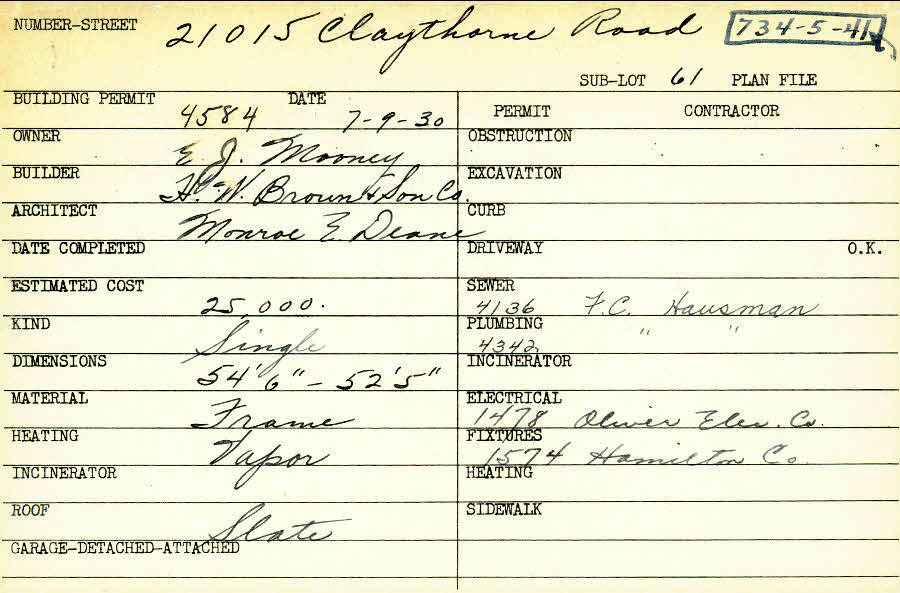 NUMBER-STREET 21015 Claythorne Road 734-5-41
SUB-LOT 61 PLAN FILE
BUILDING PERMIT 4584 DATE 7-9-30
OWNER E. J. Mooney
BUILDER H. W. Brown & Son Co.
ARCHITECT Monroe E. Deane
DATE COMPLETED
ESTIMATED COST 25,000.
KIND Single
DIMENSIONS 54'6" - 52'5"
MATERIAL Frame
HEATING Vapor
INCINERATOR
ROOF Slate
GARAGE-DETACHED-ATTACHED
PERMIT CONTRACTOR
OBSTRUCTION
EXCAVATION
CURB
DRIVEWAY O.K.
SEWER
4136 F.C. Hausman
PLUMBING " "
4342
INCINERATOR
ELECTRICAL
1478 Oliver Elec. Co.
FIXTURES
1574 Hamilton Co.
HEATING
SIDEWALK